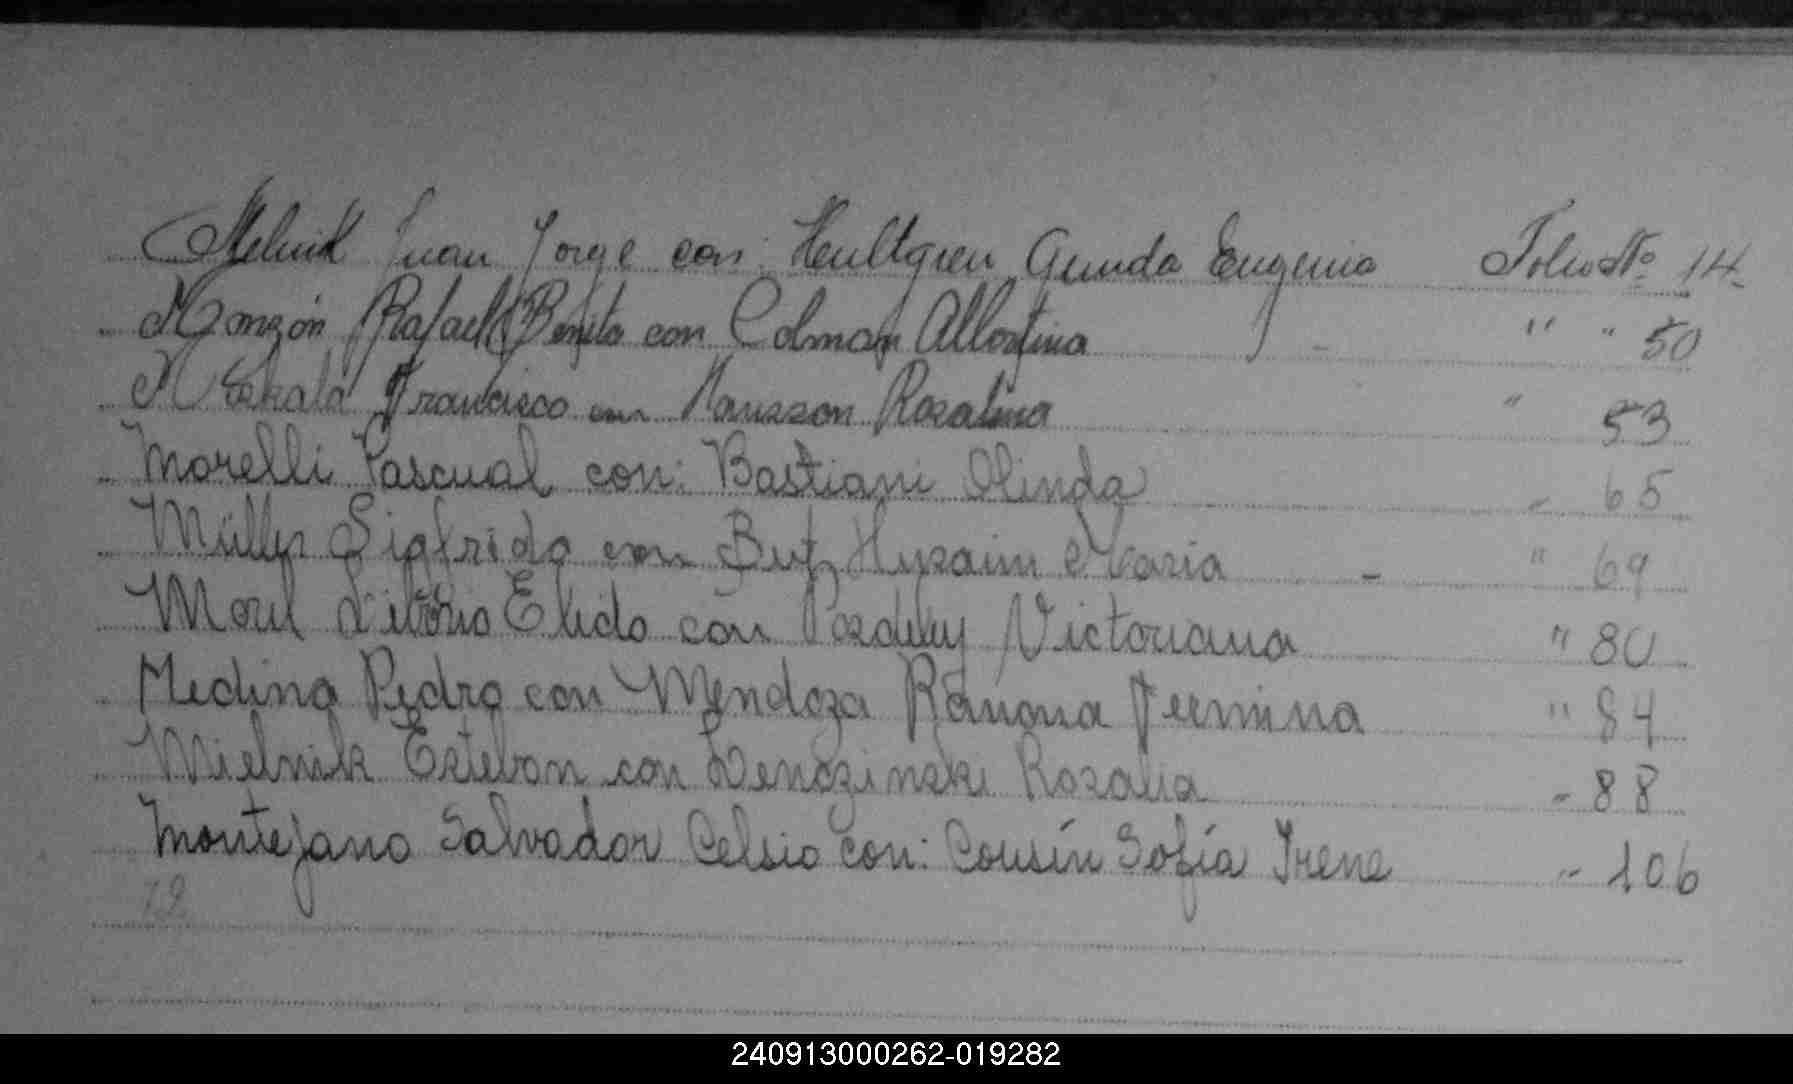 Melnik Juan Jorge con: Hultgren Gunda Eugenia Folio Nº 14.
Monzón Rafael Benito con Colman Albertina " " 50
Francisco con Hansson Rosalina " 53
Morelli Pascual con: Bastiani Olinda " 65
Müller Sigfrido con Butz Maria - " 69
Liborio Elido con Victoriana " 80
Medina Pedro con Mendoza Ramona Fermina " 84
Mielnik Esteban con Rosalia " 88
Montejano Salvador Celsio con: Cousín Sofía Irene " 106
240913000262-019282